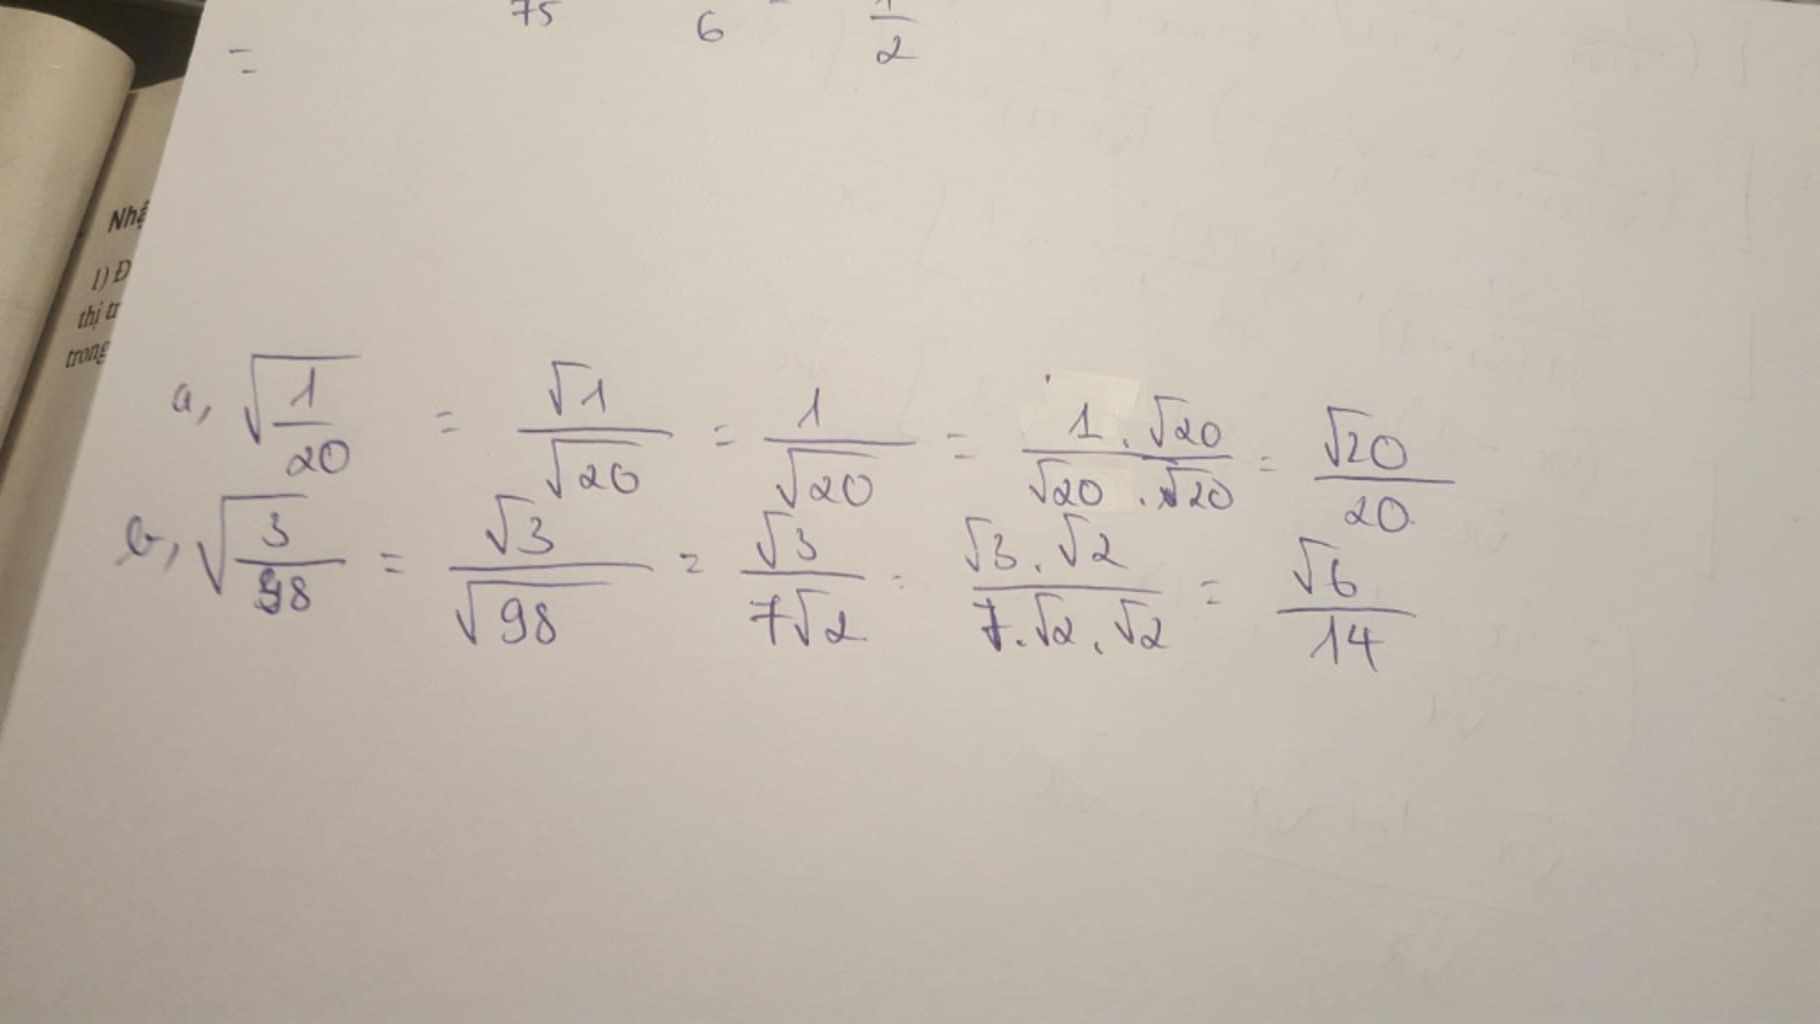 75 6 - 1/2
=
Nhậ
1) Đ
thị tr
trong
a, √(1/20) = √1/√20 = 1/√20 = 1.√20/√20.√20 = √20/20
b, √(3/98) = √3/√98 = √3/7√2 = √3.√2/7.√2.√2 = √6/14